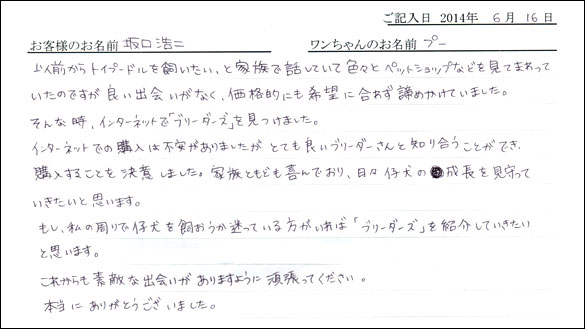 ご記入日 2014年 6月 16日
お客様のお名前 坂口浩二 ワンちゃんのお名前 プー
以前からトイプードルを飼いたい、と家族で話していて色々とペットショップなどを見てまわって
いたのですが良い出会いがなく、価格的にも希望に合わず諦めかけていました。
そんな時、インターネットで「ブリーダーズ」を見つけました。
インターネットでの購入は不安がありましたがとても良いブリーダーさんと知り合うことができ、
購入することを決意しました。家族ともども喜んでおり、日々仔犬の成長を見守って
いきたいと思います。
もし、私の周りで仔犬を飼おうか迷っている方がいれば「ブリーダーズ」を紹介していきたい
と思います。
これからも素敵な出会いがありますように頑張ってください。
本当にありがとうございました。